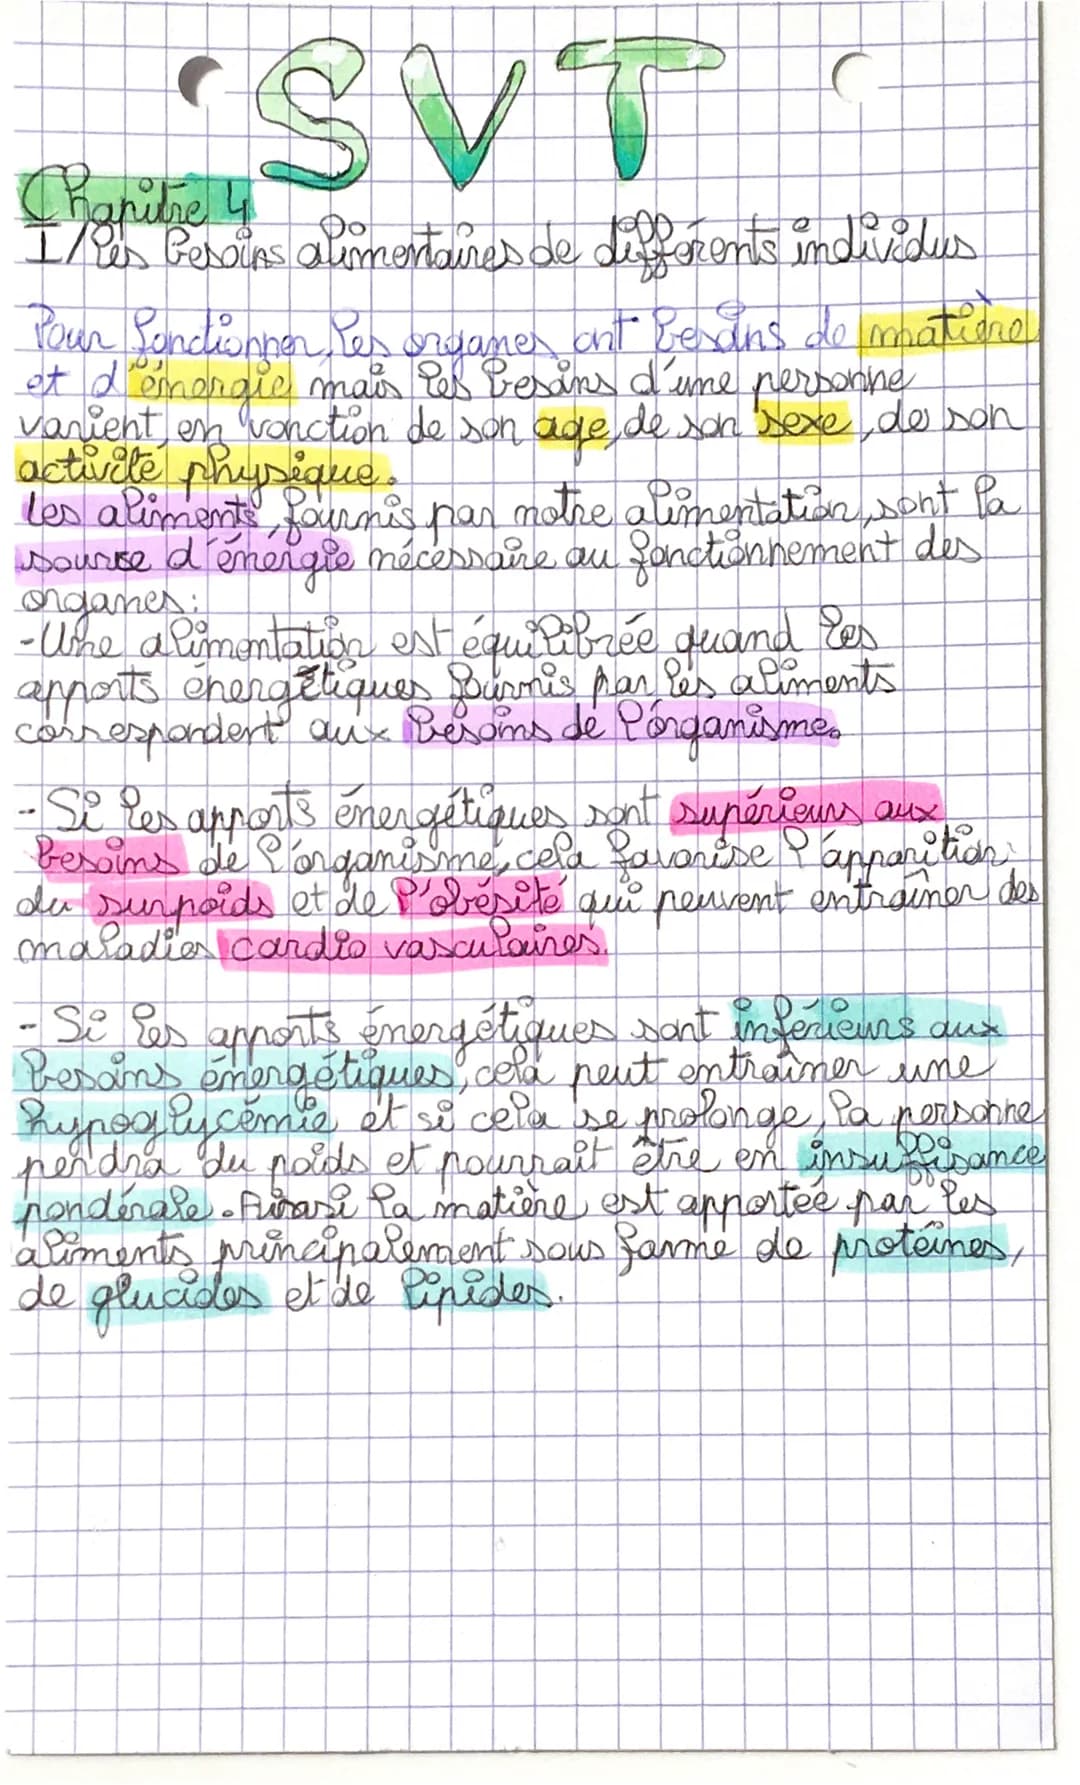 SVT
Chapitre 4
I/Les besoins alimentaires de différents individus
Pour fonctionner, les organes ont besoins de matière
et d'énergie mais les besoins d'une personne
varient, en vonction de son age, de son sexe, de son
activité physique.
Les aliments, fournis par notre alimentation, sont la
source d'énergie nécessaire au fonctionnement des
organes:
-Une alimentation est équilibrée quand les
apports énergétiques fournis par les aliments
correspondent aux besoins de l'organisme.
- Si les apports énergétiques sont supérieurs aux
besoins de l'organisme, cela favorise l'apparition
du surpoids et de l'obésité qui peuvent entraîner des
maladies cardio vasculaires.
- Si les apports énergétiques sont inférieurs aux
besoins énergétiques, cela peut entraîner une
hypoglycémie et si cela se prolonge, la personne
perdra du poids et pourrait être en insuffisance
pondérale. Ainsi la matière est apportée par les
aliments principalement sous forme de protéines,
de glucides et de lipides.